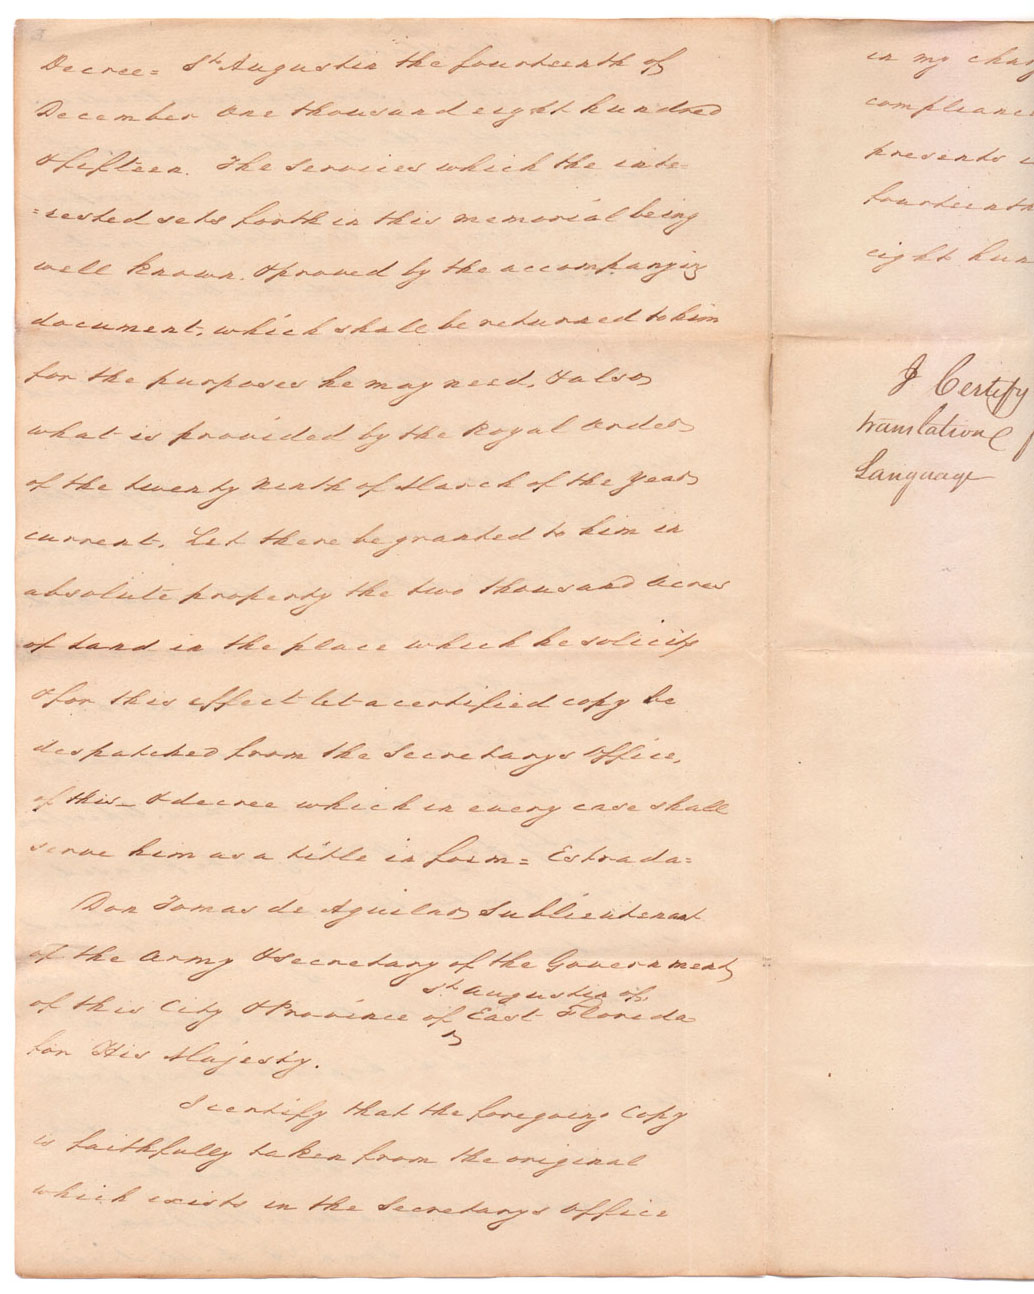 Decree = St Augustin the fourteenth of
December one thousand eight hundred
& fifteen. The services which the inte=
=rested sets forth in this memorial being
well known, & proved by the accompanying
document, which shall be returned to him
for the purposes he may need, & also
what is provided by the Royal order
of the twenty ninth of March of the year
current. Let there be granted to him in
absolute property the two thousand acres
of land in the place which he solicits
& for this effect let a certified copy be
despatched from the Secretarys Office,
of this & decree which in every case shall
serve him as a title in form = Estrada =
Don Tomas de Aguilar Sublieutenant
of the Army & Secretary of the Government
St Augustin of
of this City & Province of East Florida
for His Majesty.
I certify that the foregoing Copy
is faithfully taken from the original
which exists in the Secretarys Office
in my
complianc
presents
fourteenth
eight hun
I Certify
translation
Language